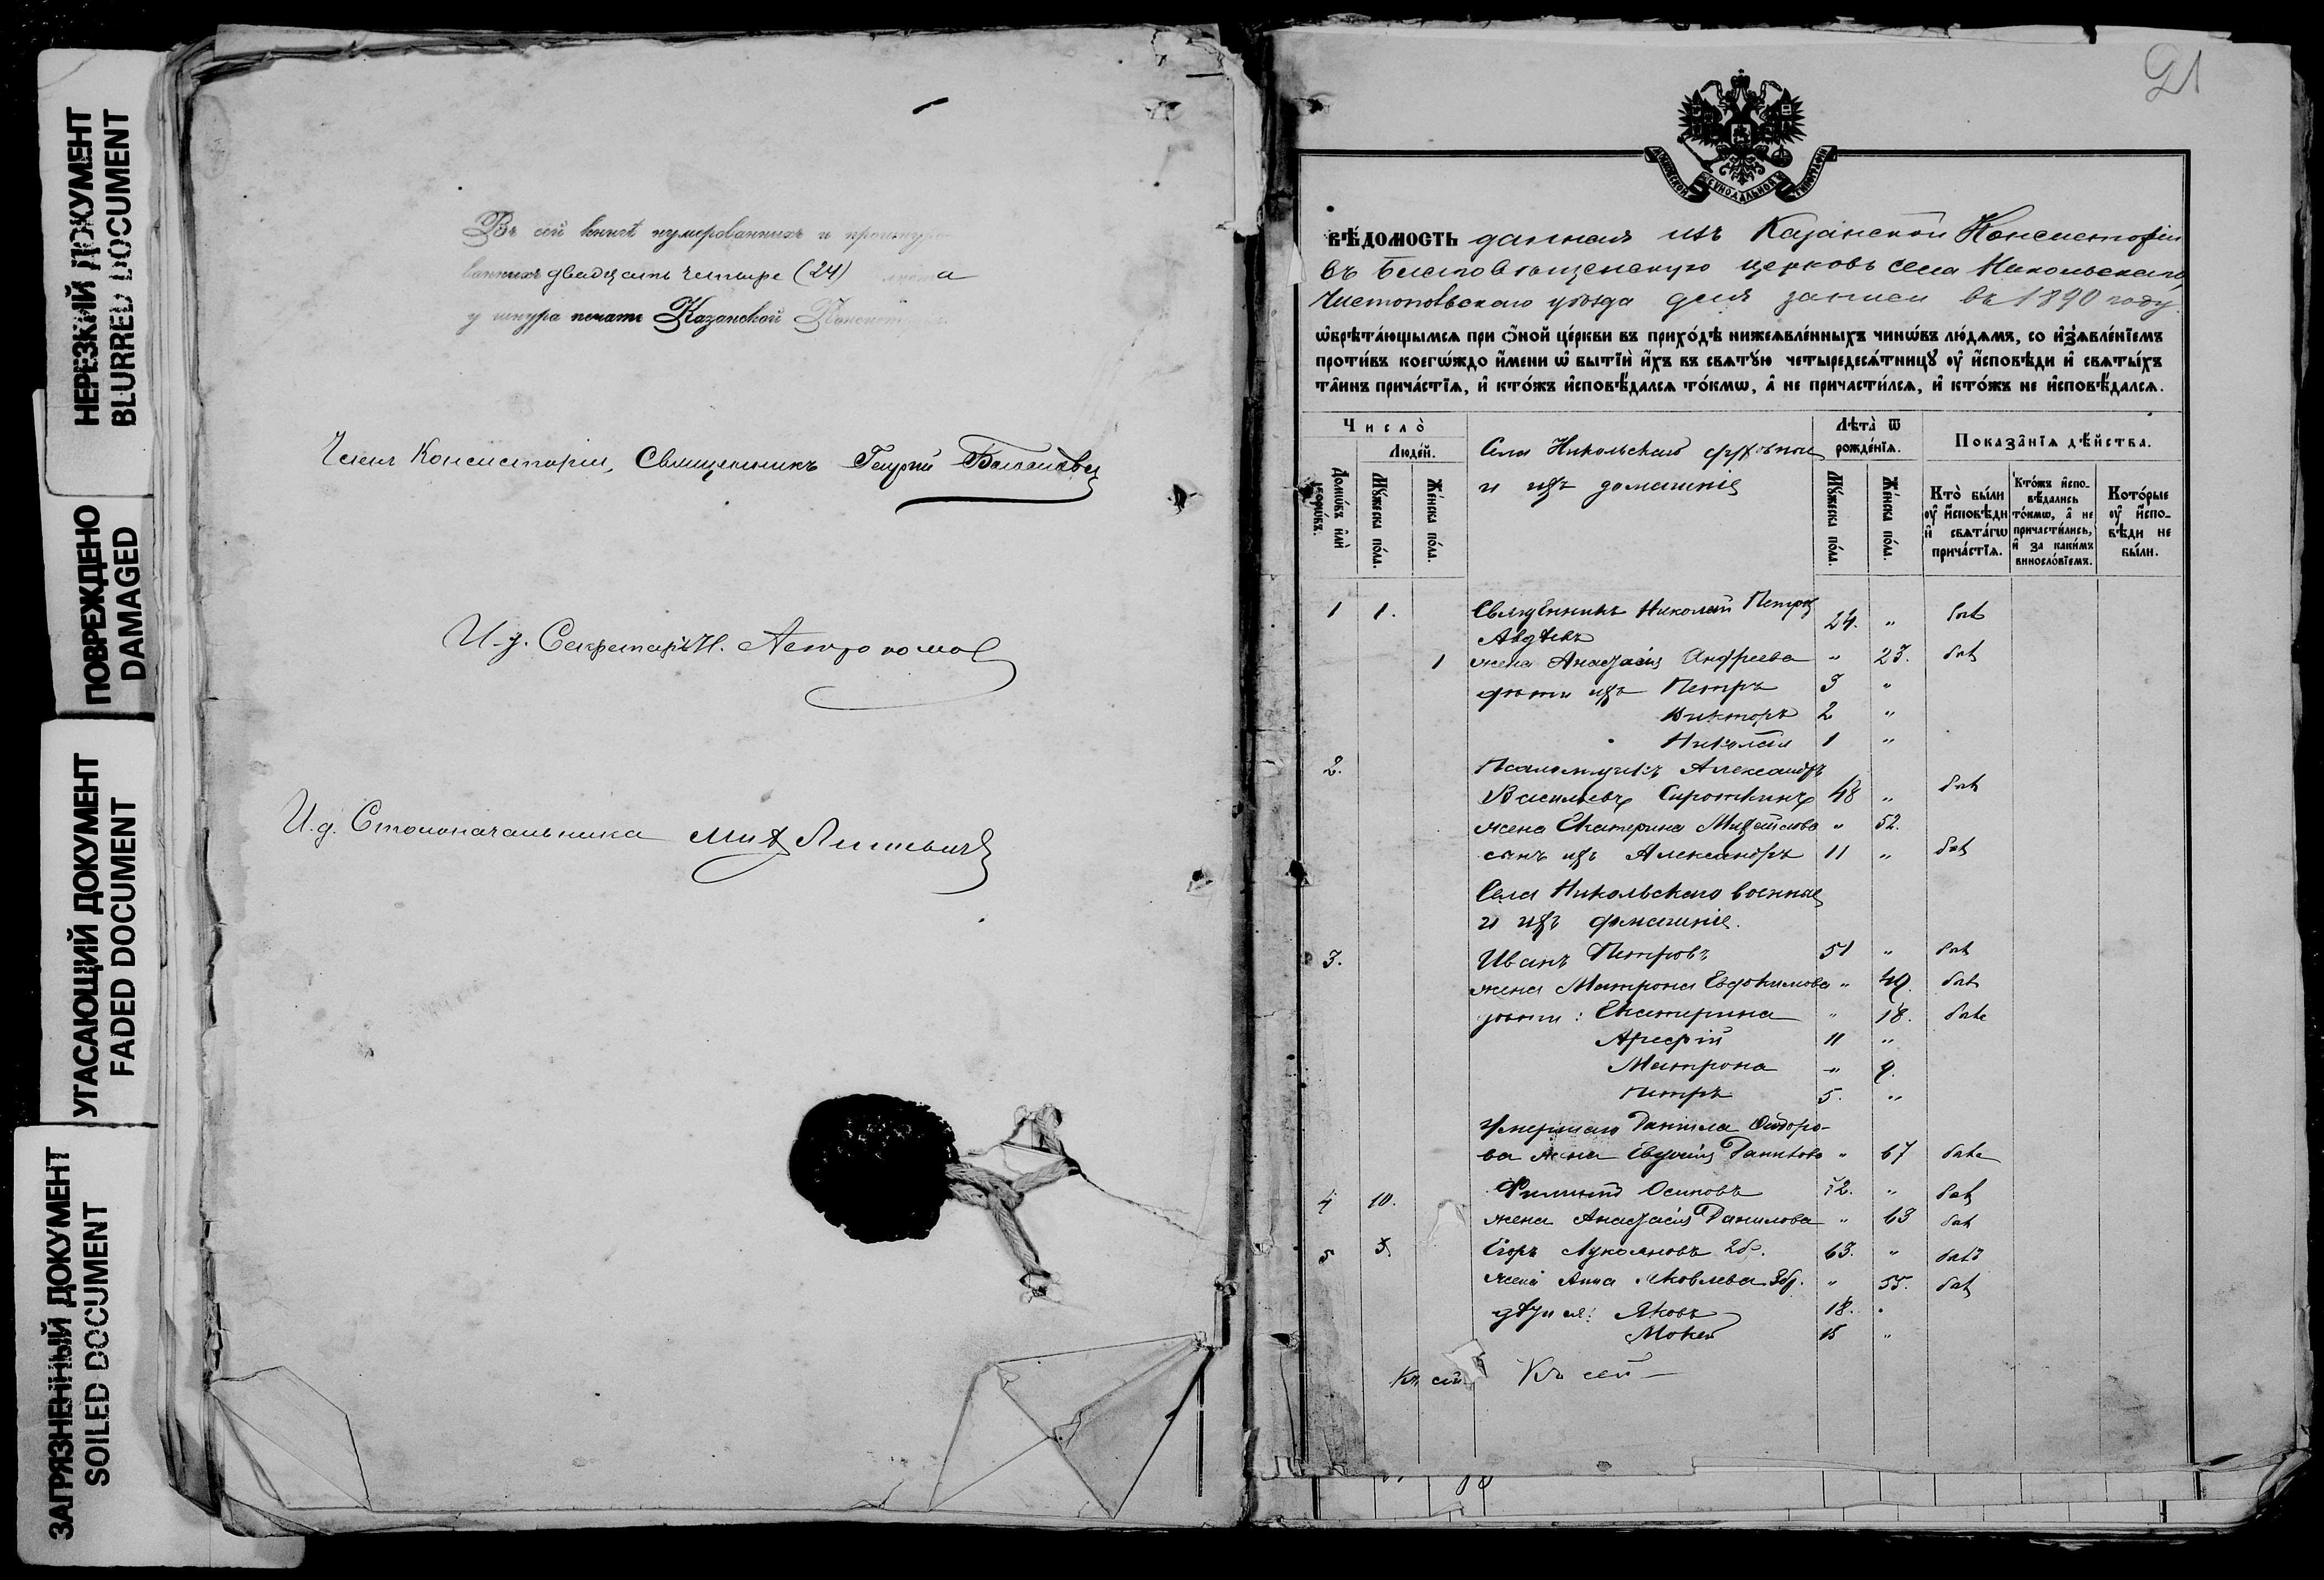 НЕРЕЗКИЙ ДОКУМЕНТ
BLURRED DOCUMENT
ПОВРЕЖДЕНО
DAMAGED
УГАСАЮЩИЙ ДОКУМЕНТ
FADED DOCUMENT
ЗАГРЯЗНЕННЫЙ ДОКУМЕНТ
SOILED DOCUMENT
Въ сей книгѣ нумерованныхъ и прошнуро
ванныхъ двадцать четыре (24) листа
у шнура печать Казанской Консисторіи
Членъ Консисторіи, Священникъ Георгій
И.д. Секретаря Н.
И.д. Столоначальника
21
МОСКОВСКОЙ СѴНОДАЛЬНОЙ ТИПОГРАФІИ
ВѢДОМОСТЬ данная изъ Казанской Консисторіи
въ Благовѣщенскую церковь села Никольскаго,
Чистопольскаго уѣзда для записи въ 1890 году
ѡ҆брѣта́ющымсѧ при ѻ҆́ной це́ркви въ прихо́дѣ нижеѧвле́нныхъ чинѡ́въ лю́дѧмъ, со и҆зъѧвле́нїемъ
проти́въ коегѡ́ждо и҆́мени ѡ҆ бытїѝ и҆́хъ въ свѧтꙋ́ю четыредесѧ́тницꙋ ᲂу҆ и҆́сповѣди и҆ свѧты́хъ
та̑инъ прича́стїѧ, и҆ кто́жъ и҆сповѣ́далсѧ то́кмѡ, а҆ не причасти́лсѧ, и҆ кто́жъ не и҆сповѣ́далсѧ.
Число̀
Люде́й.
Домѡ́въ и҆лѝ дворѡ́въ.
Мꙋ́жеска по́ла.
Же́нска по́ла.
Села Никольскаго духовные
и ихъ домашніе
Лѣта̀ ѿ рожде́нїѧ.
Мꙋ́жеска по́ла.
Же́нска по́ла.
Показа̑нїѧ дѣ́йства.
Кто̀ бы́ли ᲂу҆ и҆́сповѣди и҆ свѧта́гѡ прича́стїѧ.
Кто́жъ и҆сповѣ́дались то́кмѡ, а҆ не причасти́лись, и҆ за каки́мъ виносло́вїемъ.
Кото́рые ᲂу҆ и҆́сповѣди не бы́ли.
1 1. Священникъ Николай Петровъ
Авдѣевъ 24. „
1 жена Анастасія Андреева „ 23.
дѣти ихъ Петръ 3 „
Викторъ 2 „
Николай 1 „
2. Псаломщикъ Александръ
Васильевъ Сироткинъ 48 „
жена Екатерина Михайлова „ 52.
сынъ ихъ Александръ 11 „
Села Никольскаго военные
и ихъ домашніе.
3. Иванъ Петровъ 51 „
жена Матрона Евдокимова „ 49.
дѣти: Екатерина „ 18.
Арефій 11 „
Матрона „ 9.
Петръ 5. „
Умершаго Данила Ѳедоро-
ва жена „ 67
4 10. Филиппъ Осиповъ „
жена Анастасія Данилова „ 63
5 3. Егоръ Лукояновъ 2бр. 63. „
жена Анна Яковлева 3бр. „ 55.
Яковъ 18.
Мокей 15 „
Кл. сей Кл. сей —